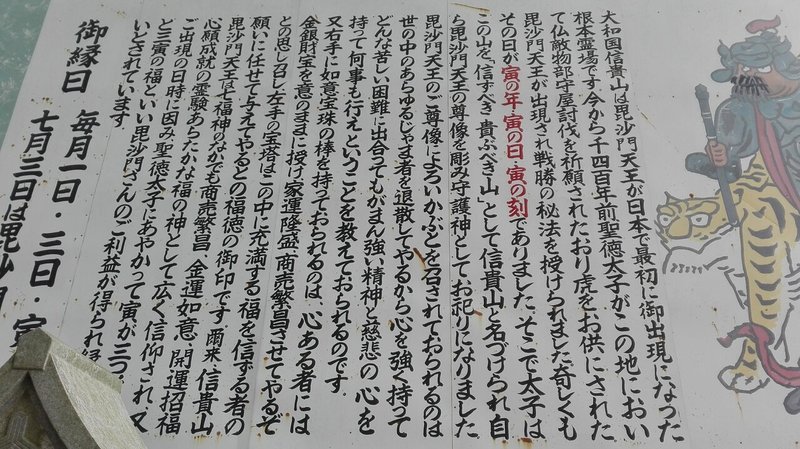 大和国信貴山は毘沙門天王が日本で最初に御出現になった
根本霊場です。今から千四百年前聖徳太子がこの地におい
て仏敵物部守屋討伐を祈願されたおり虎をお供にされた
毘沙門天王が出現され戦勝の秘法を授けられました奇しくも
その日が寅の年・寅の日・寅の刻でありました。そこで太子は
この山を、信ずべき貴ぶべき山」として信貴山と名づけられ自
ら毘沙門天王の尊像を彫み守護神としてお祀りになりました
毘沙門天王のご尊像によろいかぶとを召されておられるのは
世の中のあらゆるじゃま者を退散してやるから心を強く持って
どんな苦しい困難に出合ってもがまん強い精神と慈悲の心を
持って何事も行えということを教えておられるのです。
又右手に如意宝珠の棒を持っておられるのは、心ある者には
金銀財宝を意のままに授け家運隆盛、商売繁昌させてやるぞ
との思し召し、左手の宝塔はこの中に充満する福を信ずる者の
願いに任せて与えてやるとの福徳の御印です。爾来、信貴山
毘沙門天王は七福神のなかでも商売繁昌、金運如意、開運招福
心願成就の霊験あらたかな福の神として広く信仰され、又
ご出現の日時に因み聖徳太子にあやかって寅が三つ
ど三寅の福といい毘沙門さんのご利益が得られ
いとされています。
御縁日 毎月一日・三日・寅
七月三日は毘沙門